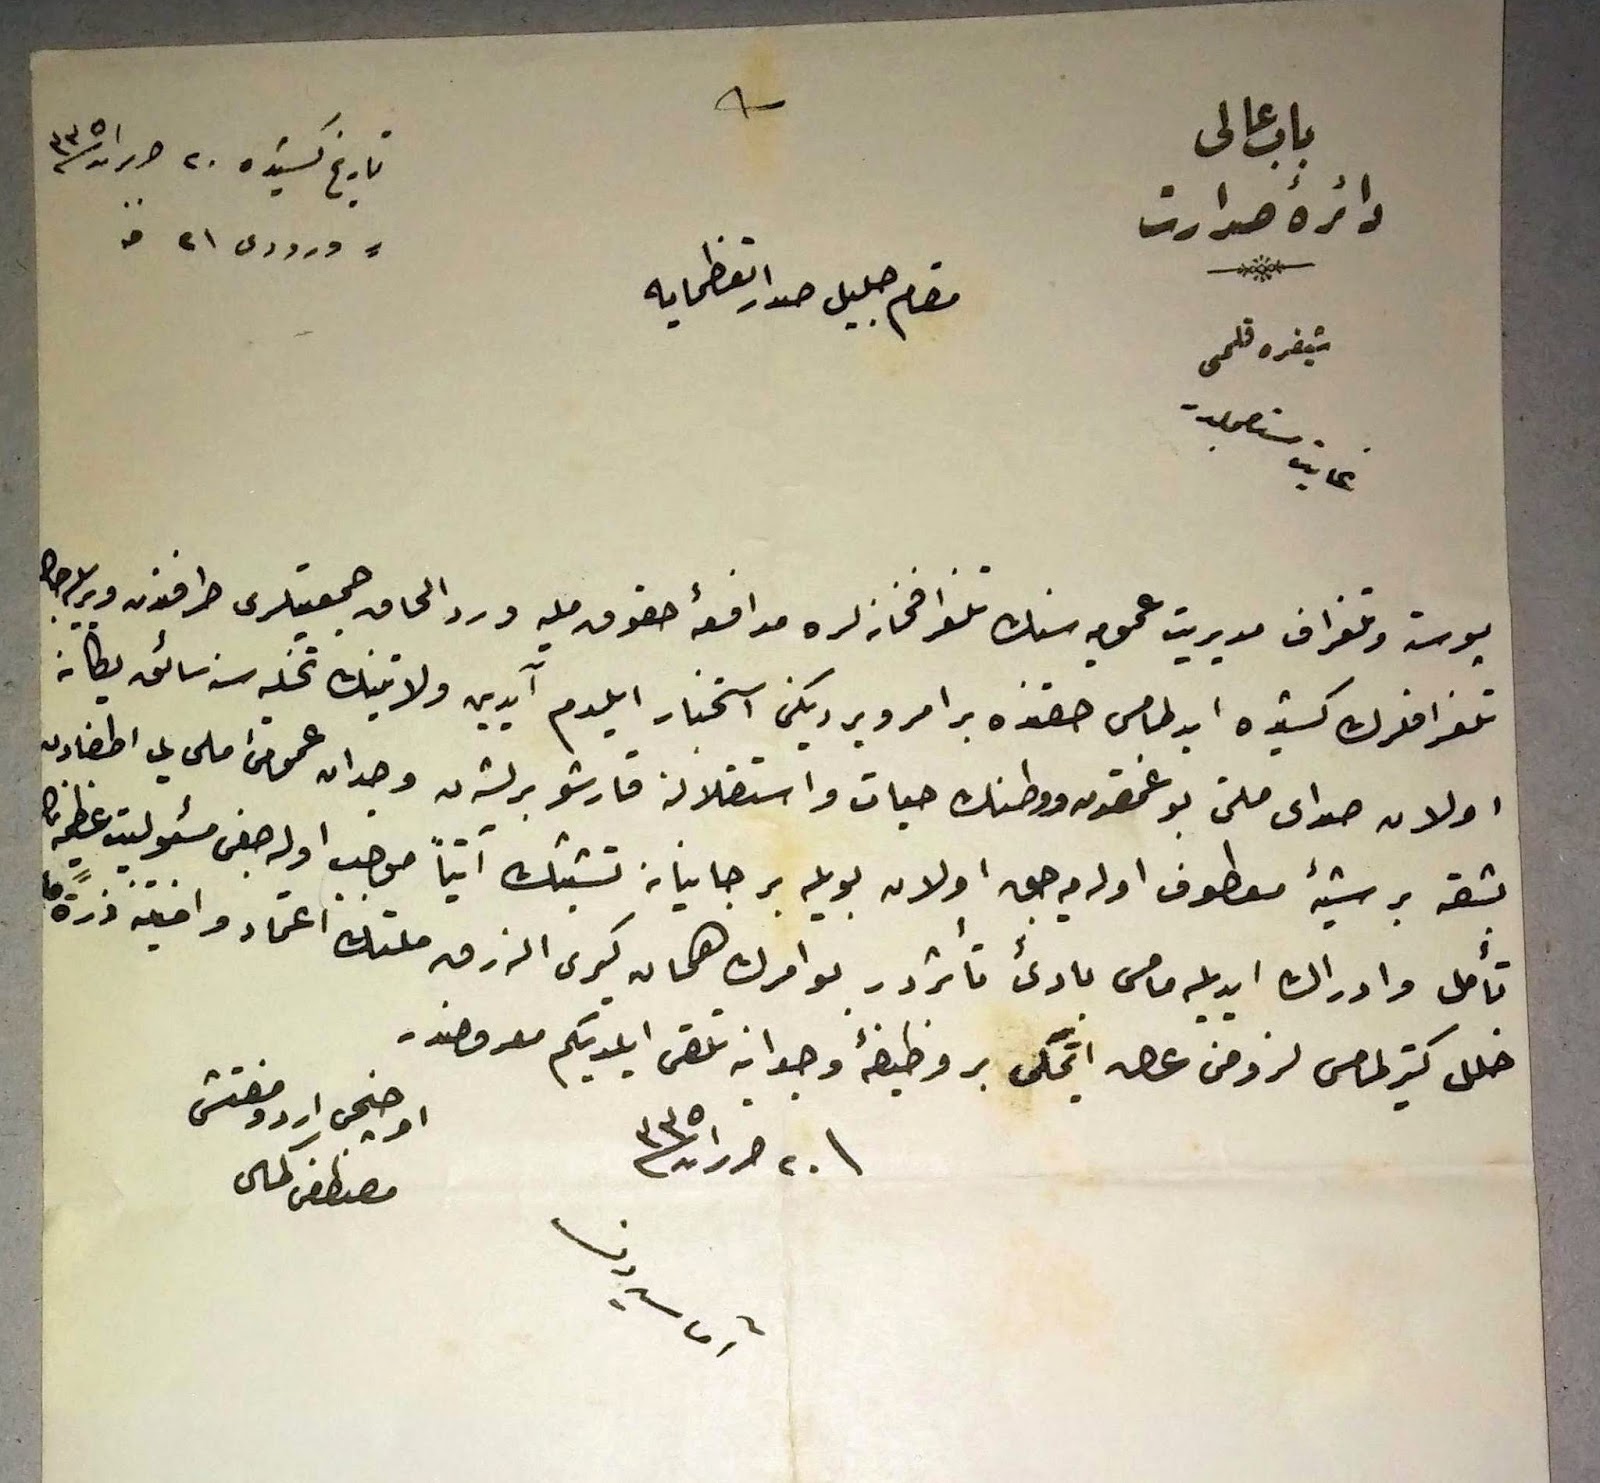 باب عالی
دائرهٔ صدارت
شیفره قلمی
غایت مستعجلدر
تاریخ کشیده ٢٠ حزیران ٣٣٥
〃 ورودی ٢١ منه
مقام جلیل صدارتعظمایه
پوسته وتلغراف مدیریت عمومیه سنك تلغرافخانه لره مدافعهٔ حقوق ملیه ورد الحاق جمعیتلری طرفندن ویریله جك
تلغرافلرك كشیده ایدلمامسی حقنده بر امر ویردیكنی استخبار ایلدم آیدین ولایتنك تخلیه سنه سائق یكانه
اولان صدای ملتی بوغمقدن ووطنك حیات واستقلالنه قارشو برلشن وجدان عمومیٔ ملی یی اطفادن
بشقه بر شیئه معطوف اوله میه جق اولان بویله بر جانیانه تشبثك آتیاً موجب اوله جغی مسئولیت عظیمه نك
تأمل وادراك ایدیله مامسی بادئ تأثردر بو امرك همان كیری النه رق ملتك اعتماد وامنیتنه ذرةً ما
خلل كتیرلمامسی لزومنی عرض ایتمكی بر وظیفهٔ وجدانیه تلقی ایلدیكم معروضدر
٢٠ حزیران ٣٣٥
اوچنجی اردو مفتشی
مصطفی كمال